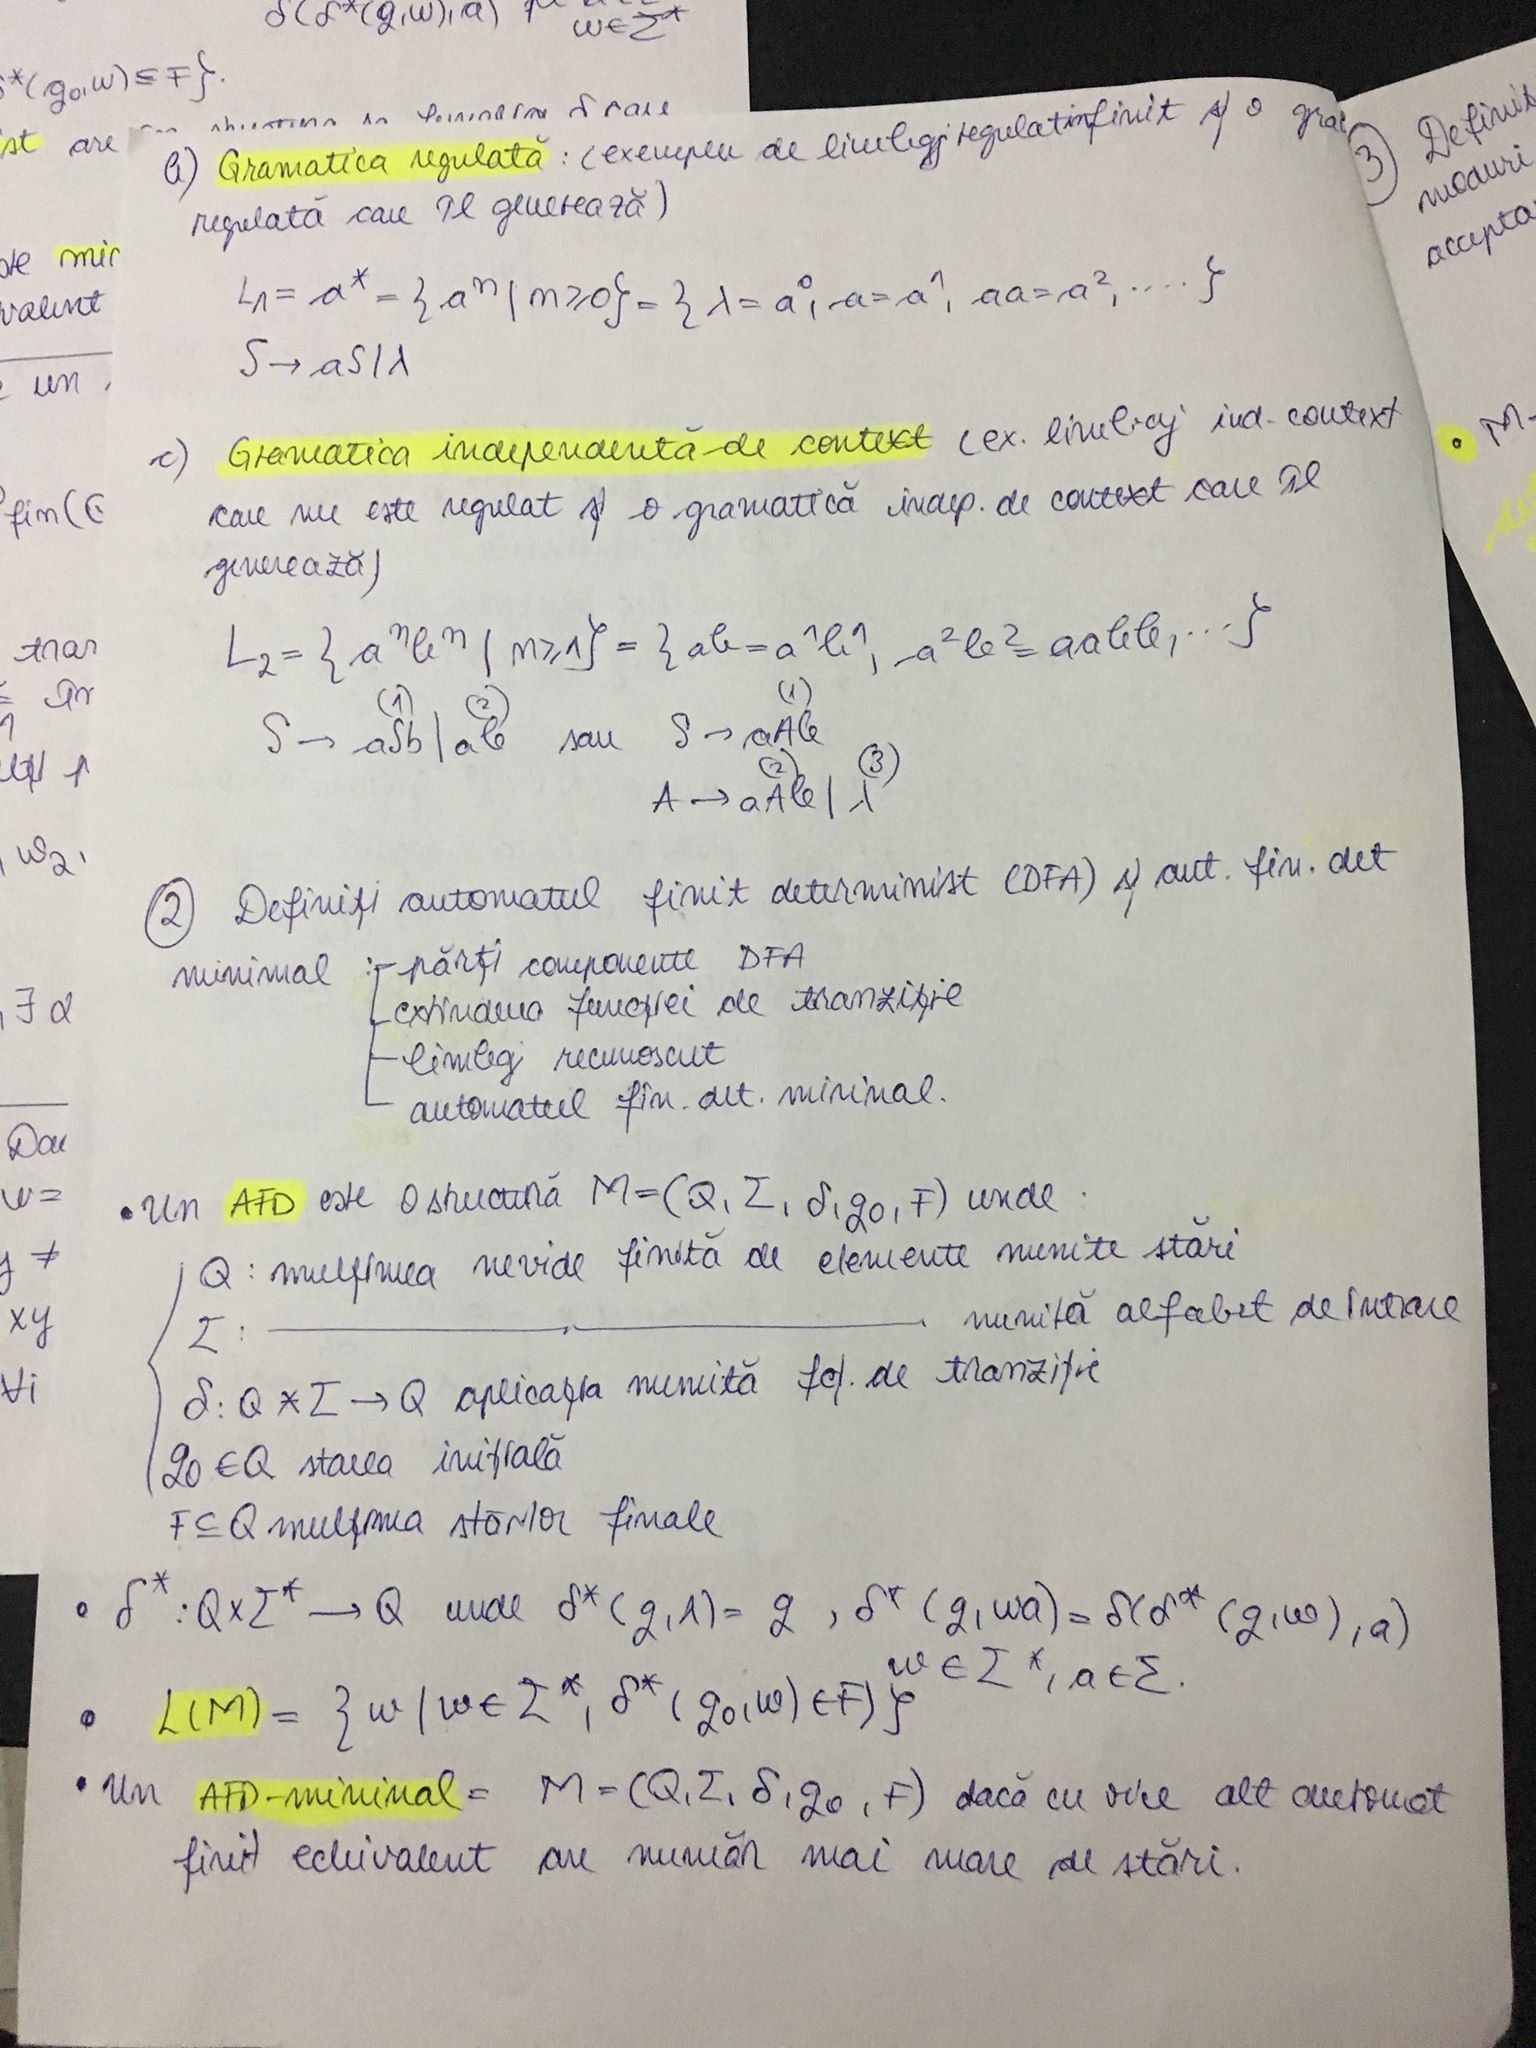 δ(δ*(q,w),a)
w∈Σ*
δ*(q₀,w)⊆F}.
st are
b) Gramatica regulată : (exemplu de limbaj regulat infinit și o gra
regulată care îl generează)
L₁ = a* = {aⁿ | n≥0} = {λ=a⁰, a=a¹, aa=a², ....}
S → aS | λ
c) Gramatica independentă de context (ex. limbaj ind. context
care nu este regulat și o gramatică indep. de context care îl
generează)
L₂ = {aⁿbⁿ | n≥1} = {ab=a¹b¹, a²b²=aabb, ...}
(1) (2) (1)
S → aSb | ab sau S → aAb
(2) (3)
A → aAb | λ
② Definiți automatul finit determinist (DFA) și aut. fin. det
minimal : - părți componente DFA
- extinderea funcției de tranziție
- limbaj recunoscut
- automatul fin. det. minimal.
• Un AFD este o structură M=(Q, Σ, δ, q₀, F) unde :
Q : mulțimea nevidă finită de elemente numite stări
Σ : ———,,——— numită alfabet de intrare
δ : Q × Σ → Q aplicația numită fcț. de tranziție
q₀ ∈ Q starea inițială
F ⊆ Q mulțimea stărilor finale
• δ* : Q×Σ* → Q unde δ*(q,λ) = q , δ*(q,wa) = δ(δ*(q,w),a)
w ∈ Σ*, a ∈ Σ.
• L(M) = {w | w∈Σ*, δ*(q₀,w)∈F)}
• Un AFD-minimal = M=(Q,Σ, δ, q₀, F) dacă cu orice alt automat
finit echivalent are număr mai mare de stări.
te min
valent
un
fin(
tran
w₂,
, ∃ α
Dau
w =
y ≠
xy
∀i
③ Definit
moduri
accepta
• M-